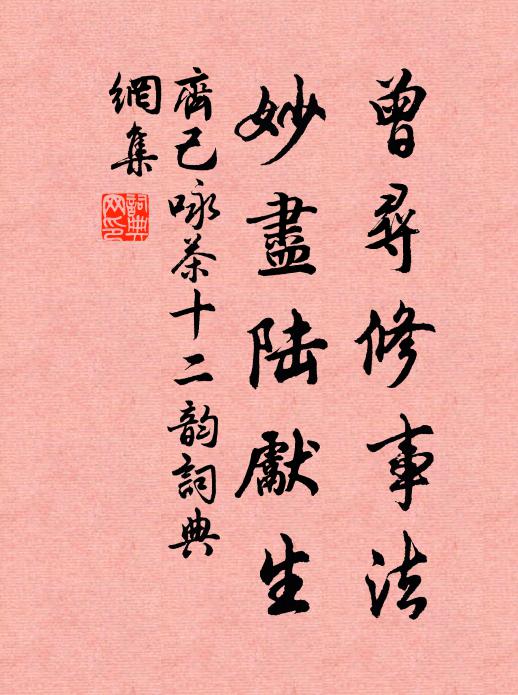 曾尋修事法
妙盡陆獻生
齊己咏茶十二韵詞典
網集
詞典網印